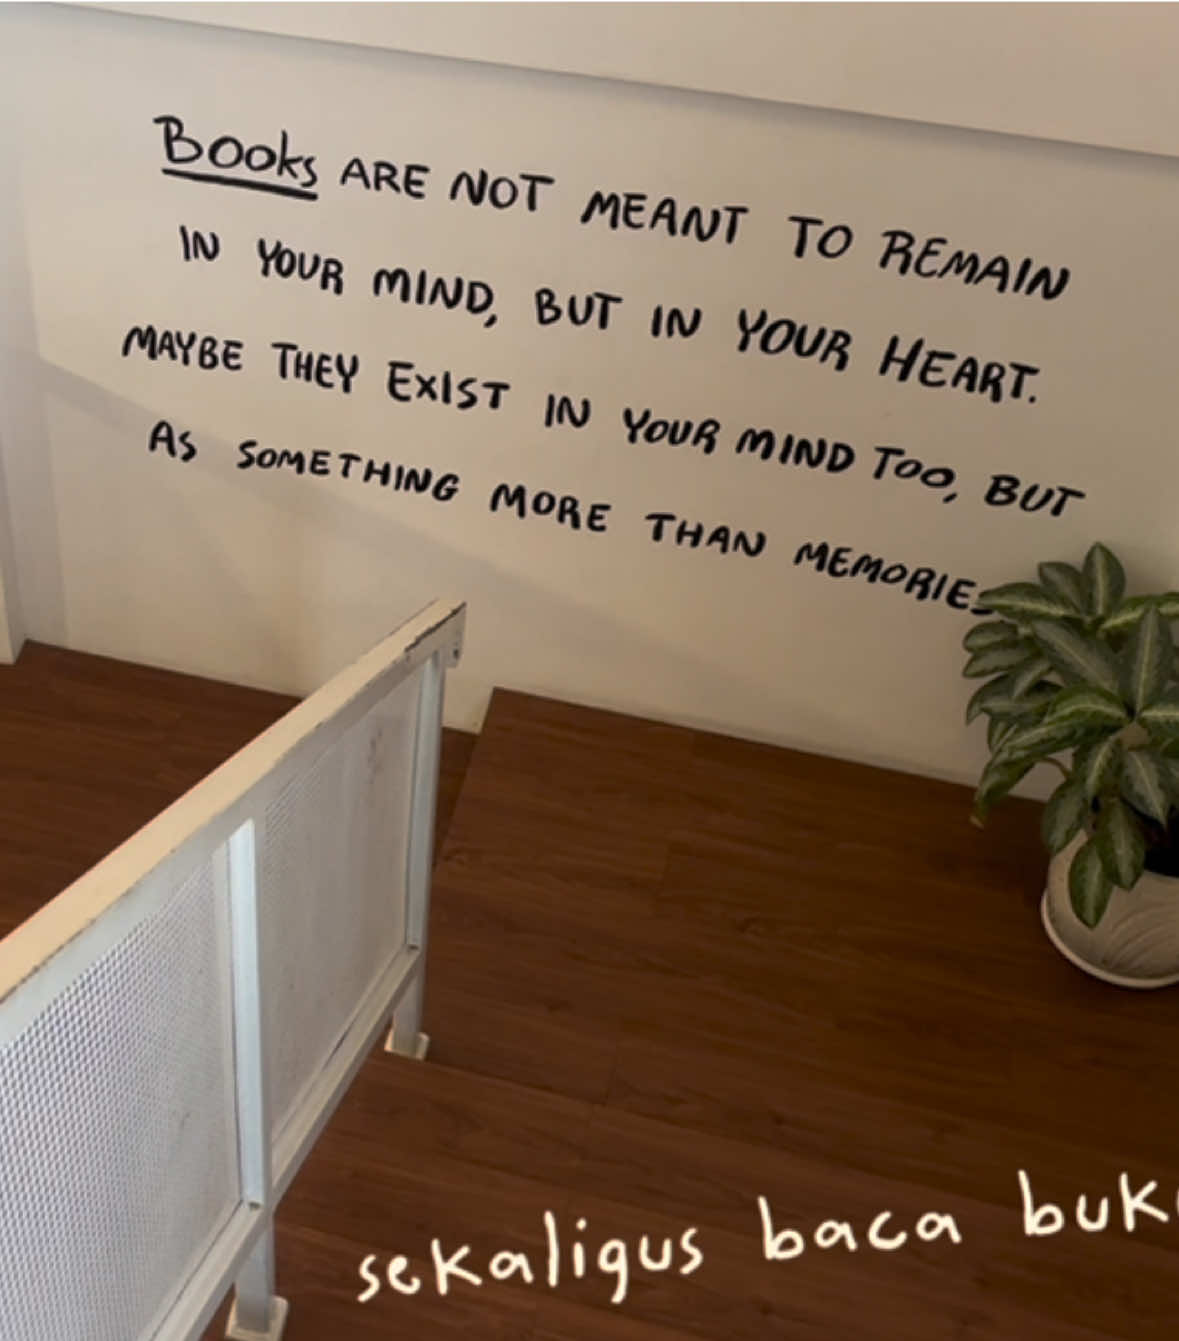 Books ARE NOT MEANT TO REMAIN
IN YOUR MIND, BUT IN YOUR HEART.
MAYBE THEY EXIST IN YOUR MIND TOO, BUT
AS SOMETHING MORE THAN MEMORIES
sekaligus baca